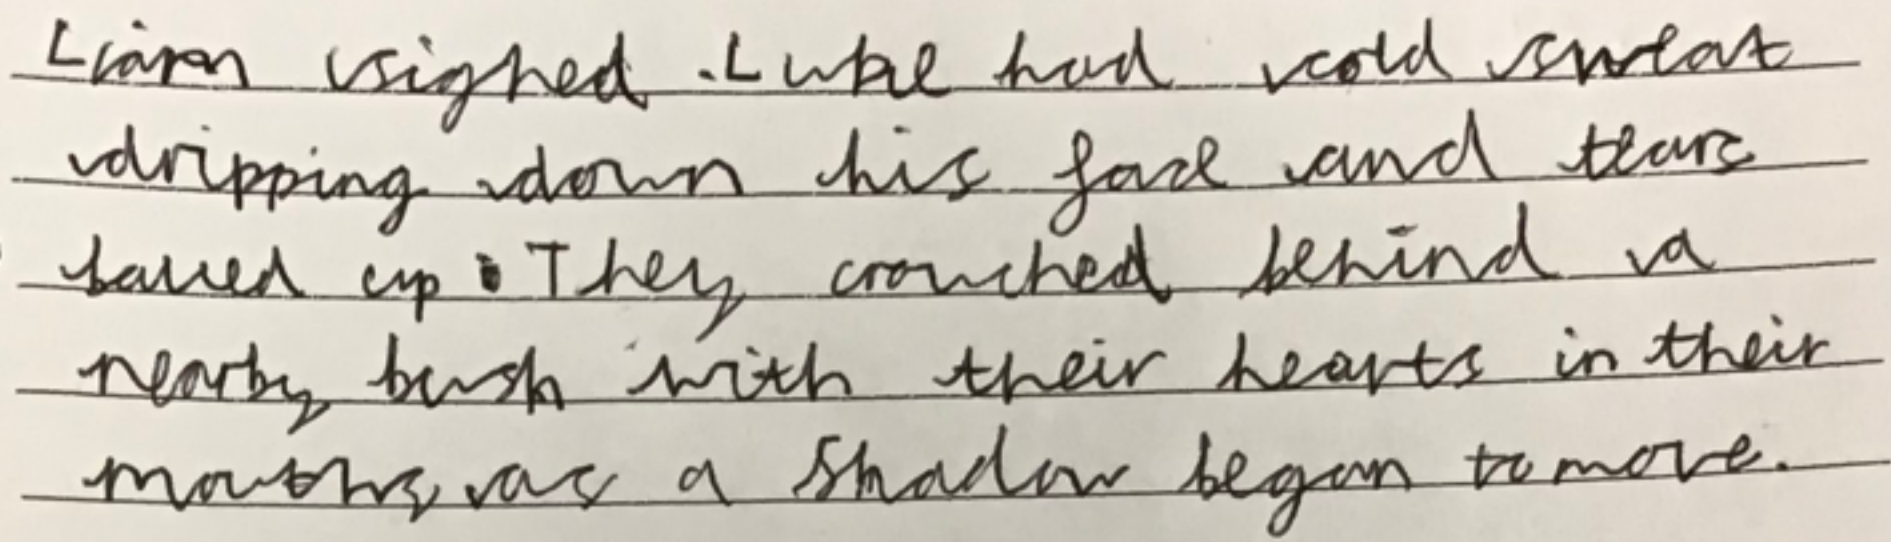 Liam sighed. Luke had cold sweat
dripping down his face and tears
balled up. They crouched behind a
nearby bush with their hearts in their
mouths, as a shadow began to move.